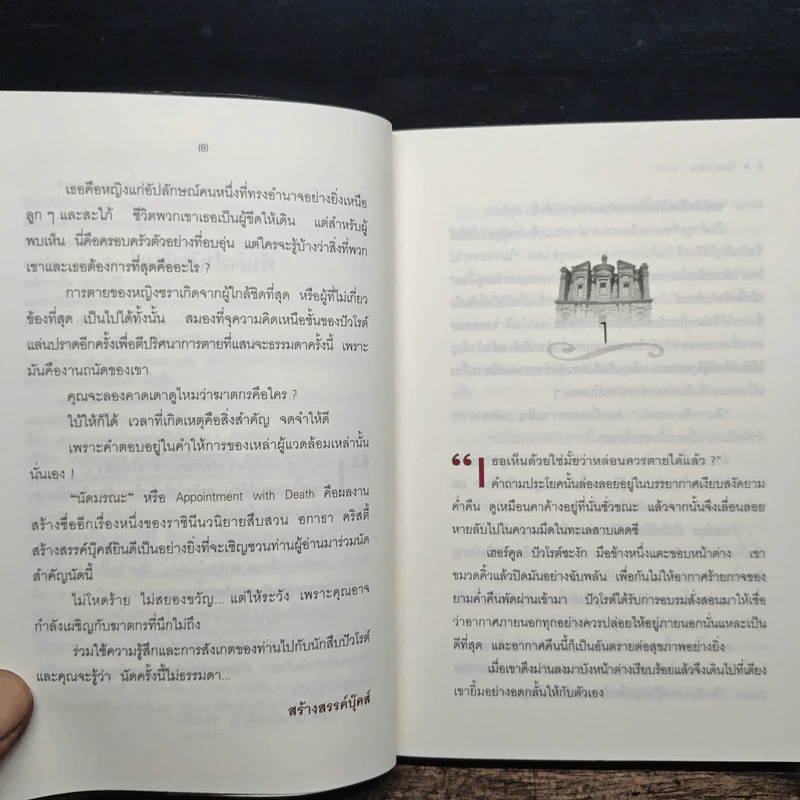 (8)
เธอคือหญิงแก่อัปลักษณ์คนหนึ่งที่ทรงอำนาจอย่างยิ่งเหนือ
ลูก ๆ และสะใภ้ ชีวิตพวกเขาเธอเป็นผู้ขีดให้เดิน แต่สำหรับผู้
พบเห็น นี่คือครอบครัวตัวอย่างที่อบอุ่น แต่ใครจะรู้บ้างว่าสิ่งที่พวก
เขาและเธอต้องการที่สุดคืออะไร ?
การตายของหญิงชราเกิดจากผู้ใกล้ชิดที่สุด หรือผู้ที่ไม่เกี่ยว
ข้องที่สุด เป็นไปได้ทั้งนั้น สมองที่จุความคิดเหนือชั้นของปัวโรต์
แล่นปราดอีกครั้งเพื่อตีปริศนาการตายที่แสนจะธรรมดาครั้งนี้ เพราะ
มันคืองานถนัดของเขา
คุณจะลองคาดเดาดูไหมว่าฆาตกรคือใคร ?
ใบ้ให้ก็ได้ เวลาที่เกิดเหตุคือสิ่งสำคัญ จดจำให้ดี
เพราะคำตอบอยู่ในคำให้การของเหล่าผู้แวดล้อมเหล่านั้น
นั่นเอง !
"นัดมรณะ" หรือ Appointment with Death คือผลงาน
สร้างชื่ออีกเรื่องหนึ่งของราชินีนวนิยายสืบสวน อกาธา คริสตี้
สร้างสรรค์บุ๊คส์ยินดีเป็นอย่างยิ่งที่จะเชิญชวนท่านผู้อ่านมาร่วมนัด
สำคัญนัดนี้
ไม่โหดร้าย ไม่สยองขวัญ... แต่ให้ระวัง เพราะคุณอาจ
กำลังเผชิญกับฆาตกรที่นึกไม่ถึง
ร่วมใช้ความรู้สึกและการสังเกตของท่านไปกับนักสืบปัวโรต์
และคุณจะรู้ว่า นัดครั้งนี้ไม่ธรรมดา...
สร้างสรรค์บุ๊คส์
1
"เธอเห็นด้วยใช่มั้ยว่าหล่อนควรตายได้แล้ว ?"
คำถามประโยคนั้นล่องลอยอยู่ในบรรยากาศเงียบสงัดยาม
ค่ำคืน ดูเหมือนคาค้างอยู่ที่นั่นชั่วขณะ แล้วจากนั้นจึงเลื่อนลอย
หายลับไปในความมืดในทะเลสาบเดดซี
เฮอร์คูล ปัวโรต์ชะงัก มือข้างหนึ่งแตะขอบหน้าต่าง เขา
ขมวดคิ้วแล้วปิดมันอย่างฉับพลัน เพื่อกันไม่ให้อากาศร้ายกาจของ
ยามค่ำคืนพัดผ่านเข้ามา ปัวโรต์ได้รับการอบรมสั่งสอนมาให้เชื่อ
ว่าอากาศภายนอกทุกอย่างควรปล่อยให้อยู่ภายนอกนั่นแหละเป็น
ดีที่สุด และอากาศคืนนี้ก็เป็นอันตรายต่อสุขภาพอย่างยิ่ง
เมื่อเขาดึงม่านลงมาบังหน้าต่างเรียบร้อยแล้วจึงเดินไปที่เตียง
เขายิ้มอย่างอดกลั้นให้กับตัวเอง